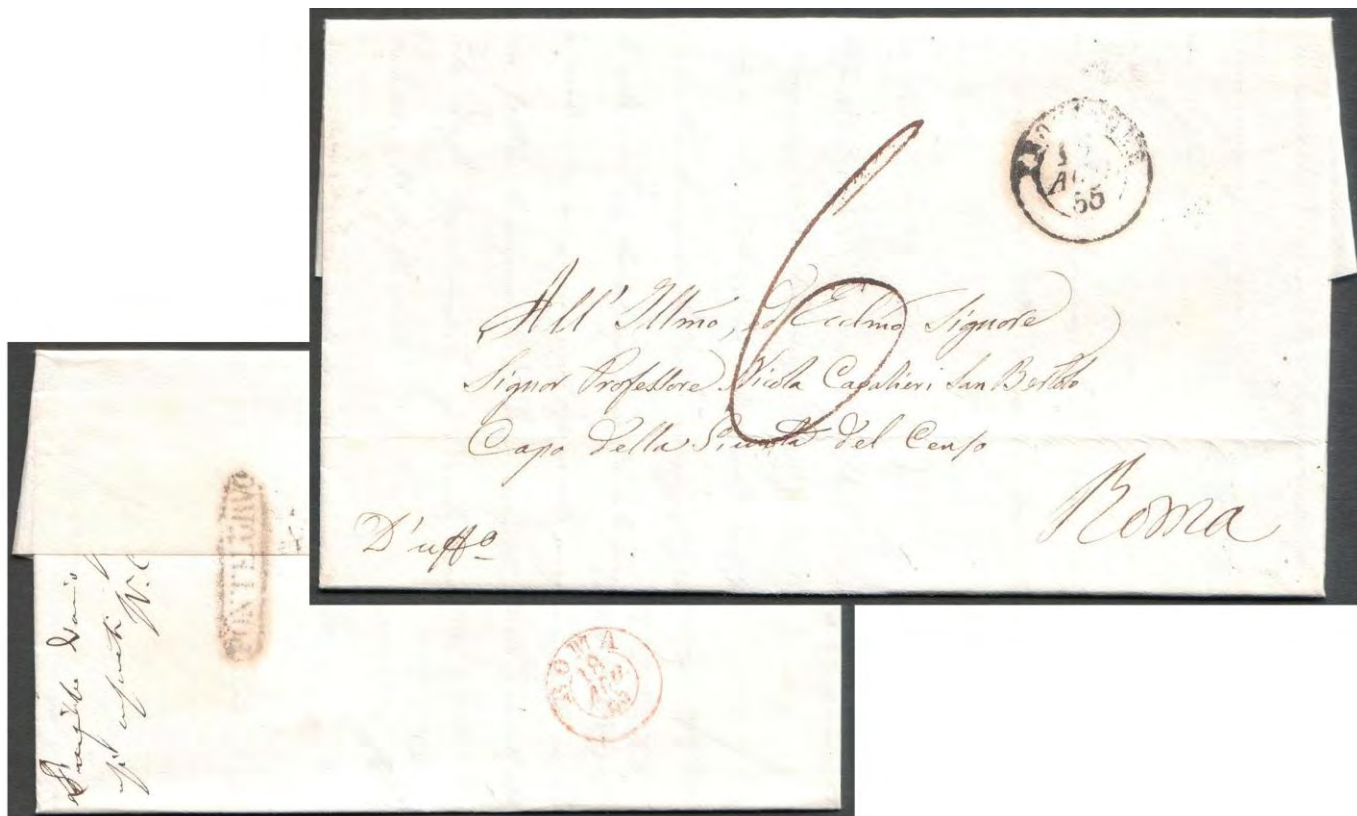 AGO
55
6
All' Illmo, ed Ecclmo Signore
Signor Professore Nicola Cavalieri San Bertolo
Capo della Giunta del Censo
Roma
D'uffo
PONTECORVO
ROMA
18
AGO
55